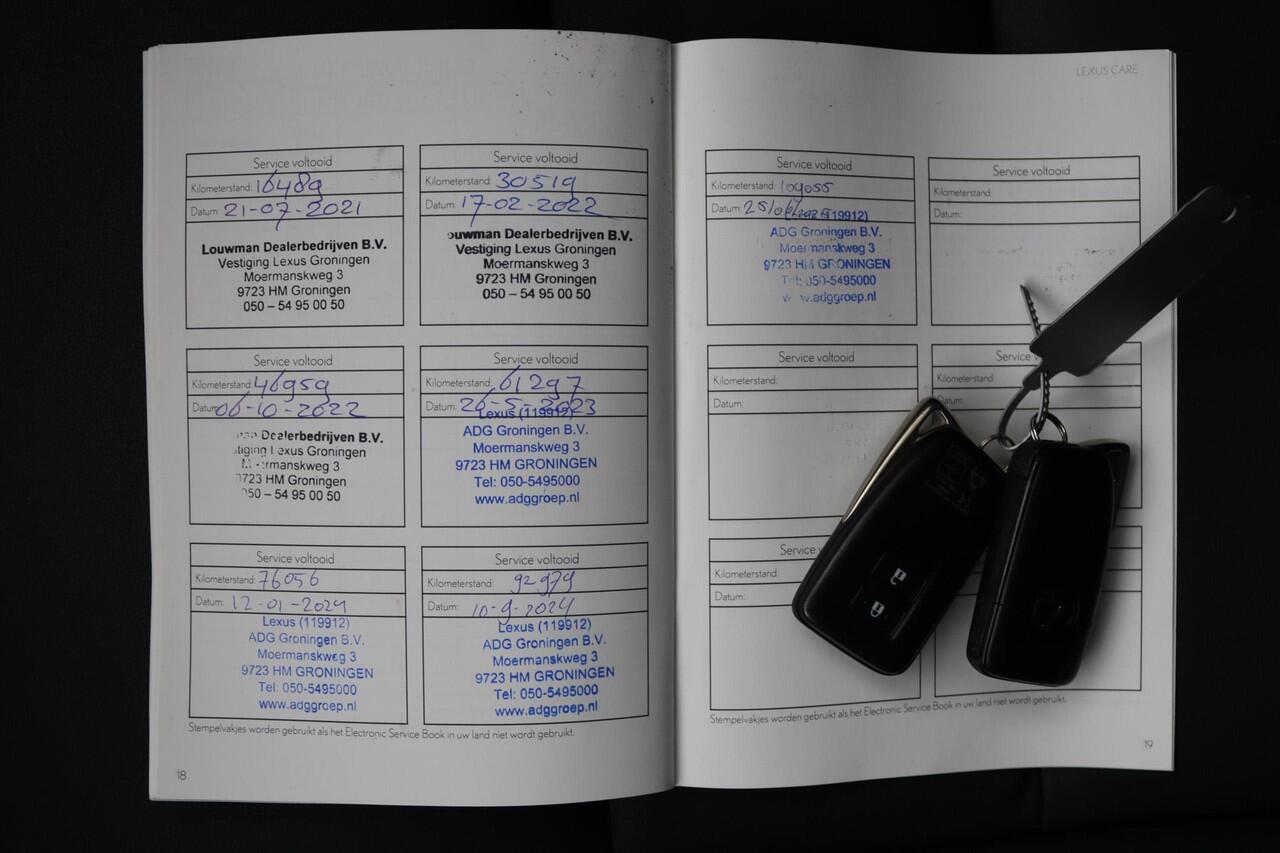 Service voltooid
Kilometerstand: 16489
Datum: 21-07-2021
Louwman Dealerbedrijven B.V.
Vestiging Lexus Groningen
Moermanskweg 3
9723 HM Groningen
050 – 54 95 00 50
Service voltooid
Kilometerstand: 30519
Datum: 17-02-2022
ouwman Dealerbedrijven B.V.
Vestiging Lexus Groningen
Moermanskweg 3
9723 HM Groningen
050 – 54 95 00 50
Service voltooid
Kilometerstand: 46959
Datum: 06-10-2022
Dealerbedrijven B.V.
Lexus Groningen
Moermanskweg 3
9723 HM Groningen
050 – 54 95 00 50
Service voltooid
Kilometerstand: 61297
Datum: 26-5-2023
Lexus (119912)
ADG Groningen B.V.
Moermanskweg 3
9723 HM GRONINGEN
Tel: 050-5495000
www.adggroep.nl
Service voltooid
Kilometerstand: 76056
Datum: 12-01-2024
Lexus (119912)
ADG Groningen B.V.
Moermanskweg 3
9723 HM GRONINGEN
Tel: 050-5495000
www.adggroep.nl
Service voltooid
Kilometerstand: 92979
Datum: 10-9-2024
Lexus (119912)
ADG Groningen B.V.
Moermanskweg 3
9723 HM GRONINGEN
Tel: 050-5495000
www.adggroep.nl
Stempelvakjes worden gebruikt als het Electronic Service Book in uw land niet wordt gebruikt.
18
LEXUS CARE
Service voltooid
Kilometerstand: 109055
Datum:
(119912)
ADG Groningen B.V.
Moermanskweg 3
9723 HM GRONINGEN
Tel: 050-5495000
www.adggroep.nl
Service voltooid
Kilometerstand:
Datum:
Service voltooid
Kilometerstand:
Datum:
Service
Kilometerstand:
Service
Kilometerstand:
Datum:
Stempelvakjes worden gebruikt als het Electronic Service Book in uw land niet wordt gebruikt.
19